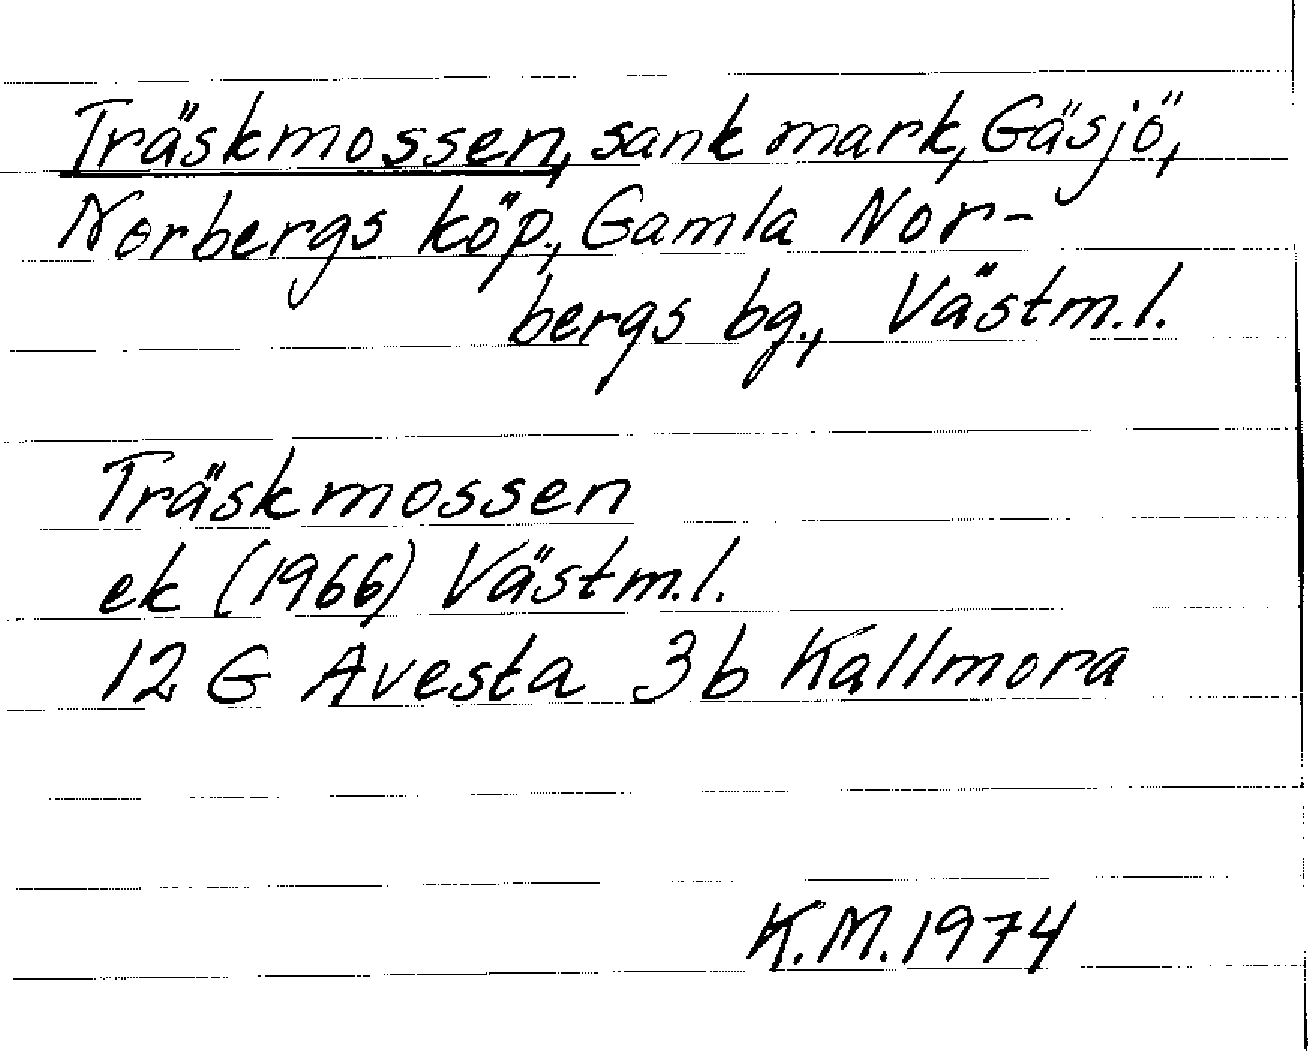 Träskmossen, sank mark, Gäsjö,
Norbergs köp., Gamla Nor-
bergs bg., Västm.l.
Träskmossen
ek (1966) Västm.l.
12 G Avesta 3b Kallmora
K.M. 1974